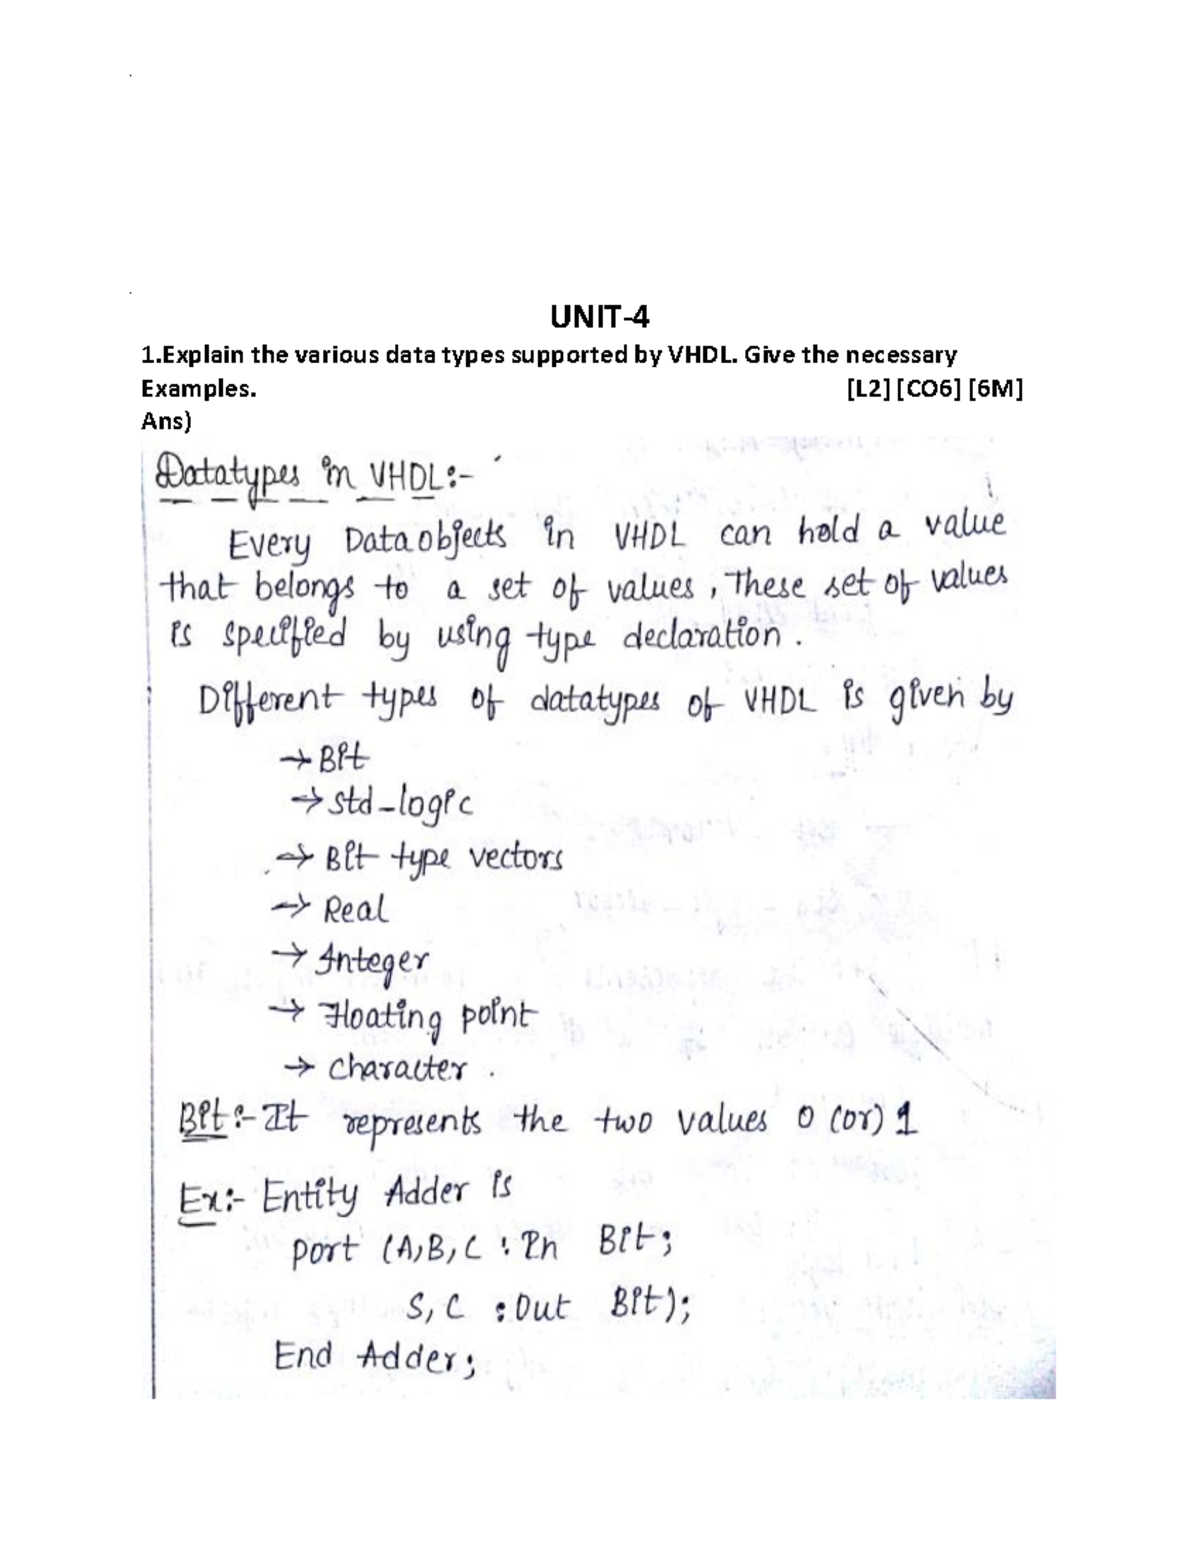 UNIT-4
1.Explain the various data types supported by VHDL. Give the necessary
Examples. [L2] [CO6] [6M]
Ans)
Datatypes in VHDL:-
Every Dataobjects in VHDL can hold a value
that belongs to a set of values, These set of values
is specified by using type declaration.
Different types of datatypes of VHDL is given by
→ Bit
→ std-logic
→ Bit type vectors
→ Real
→ Integer
→ Floating point
→ character.
Bit:- It represents the two values 0 (or) 1
Ex:- Entity Adder is
port (A,B,C : In Bit;
S,C : Out Bit);
End Adder;